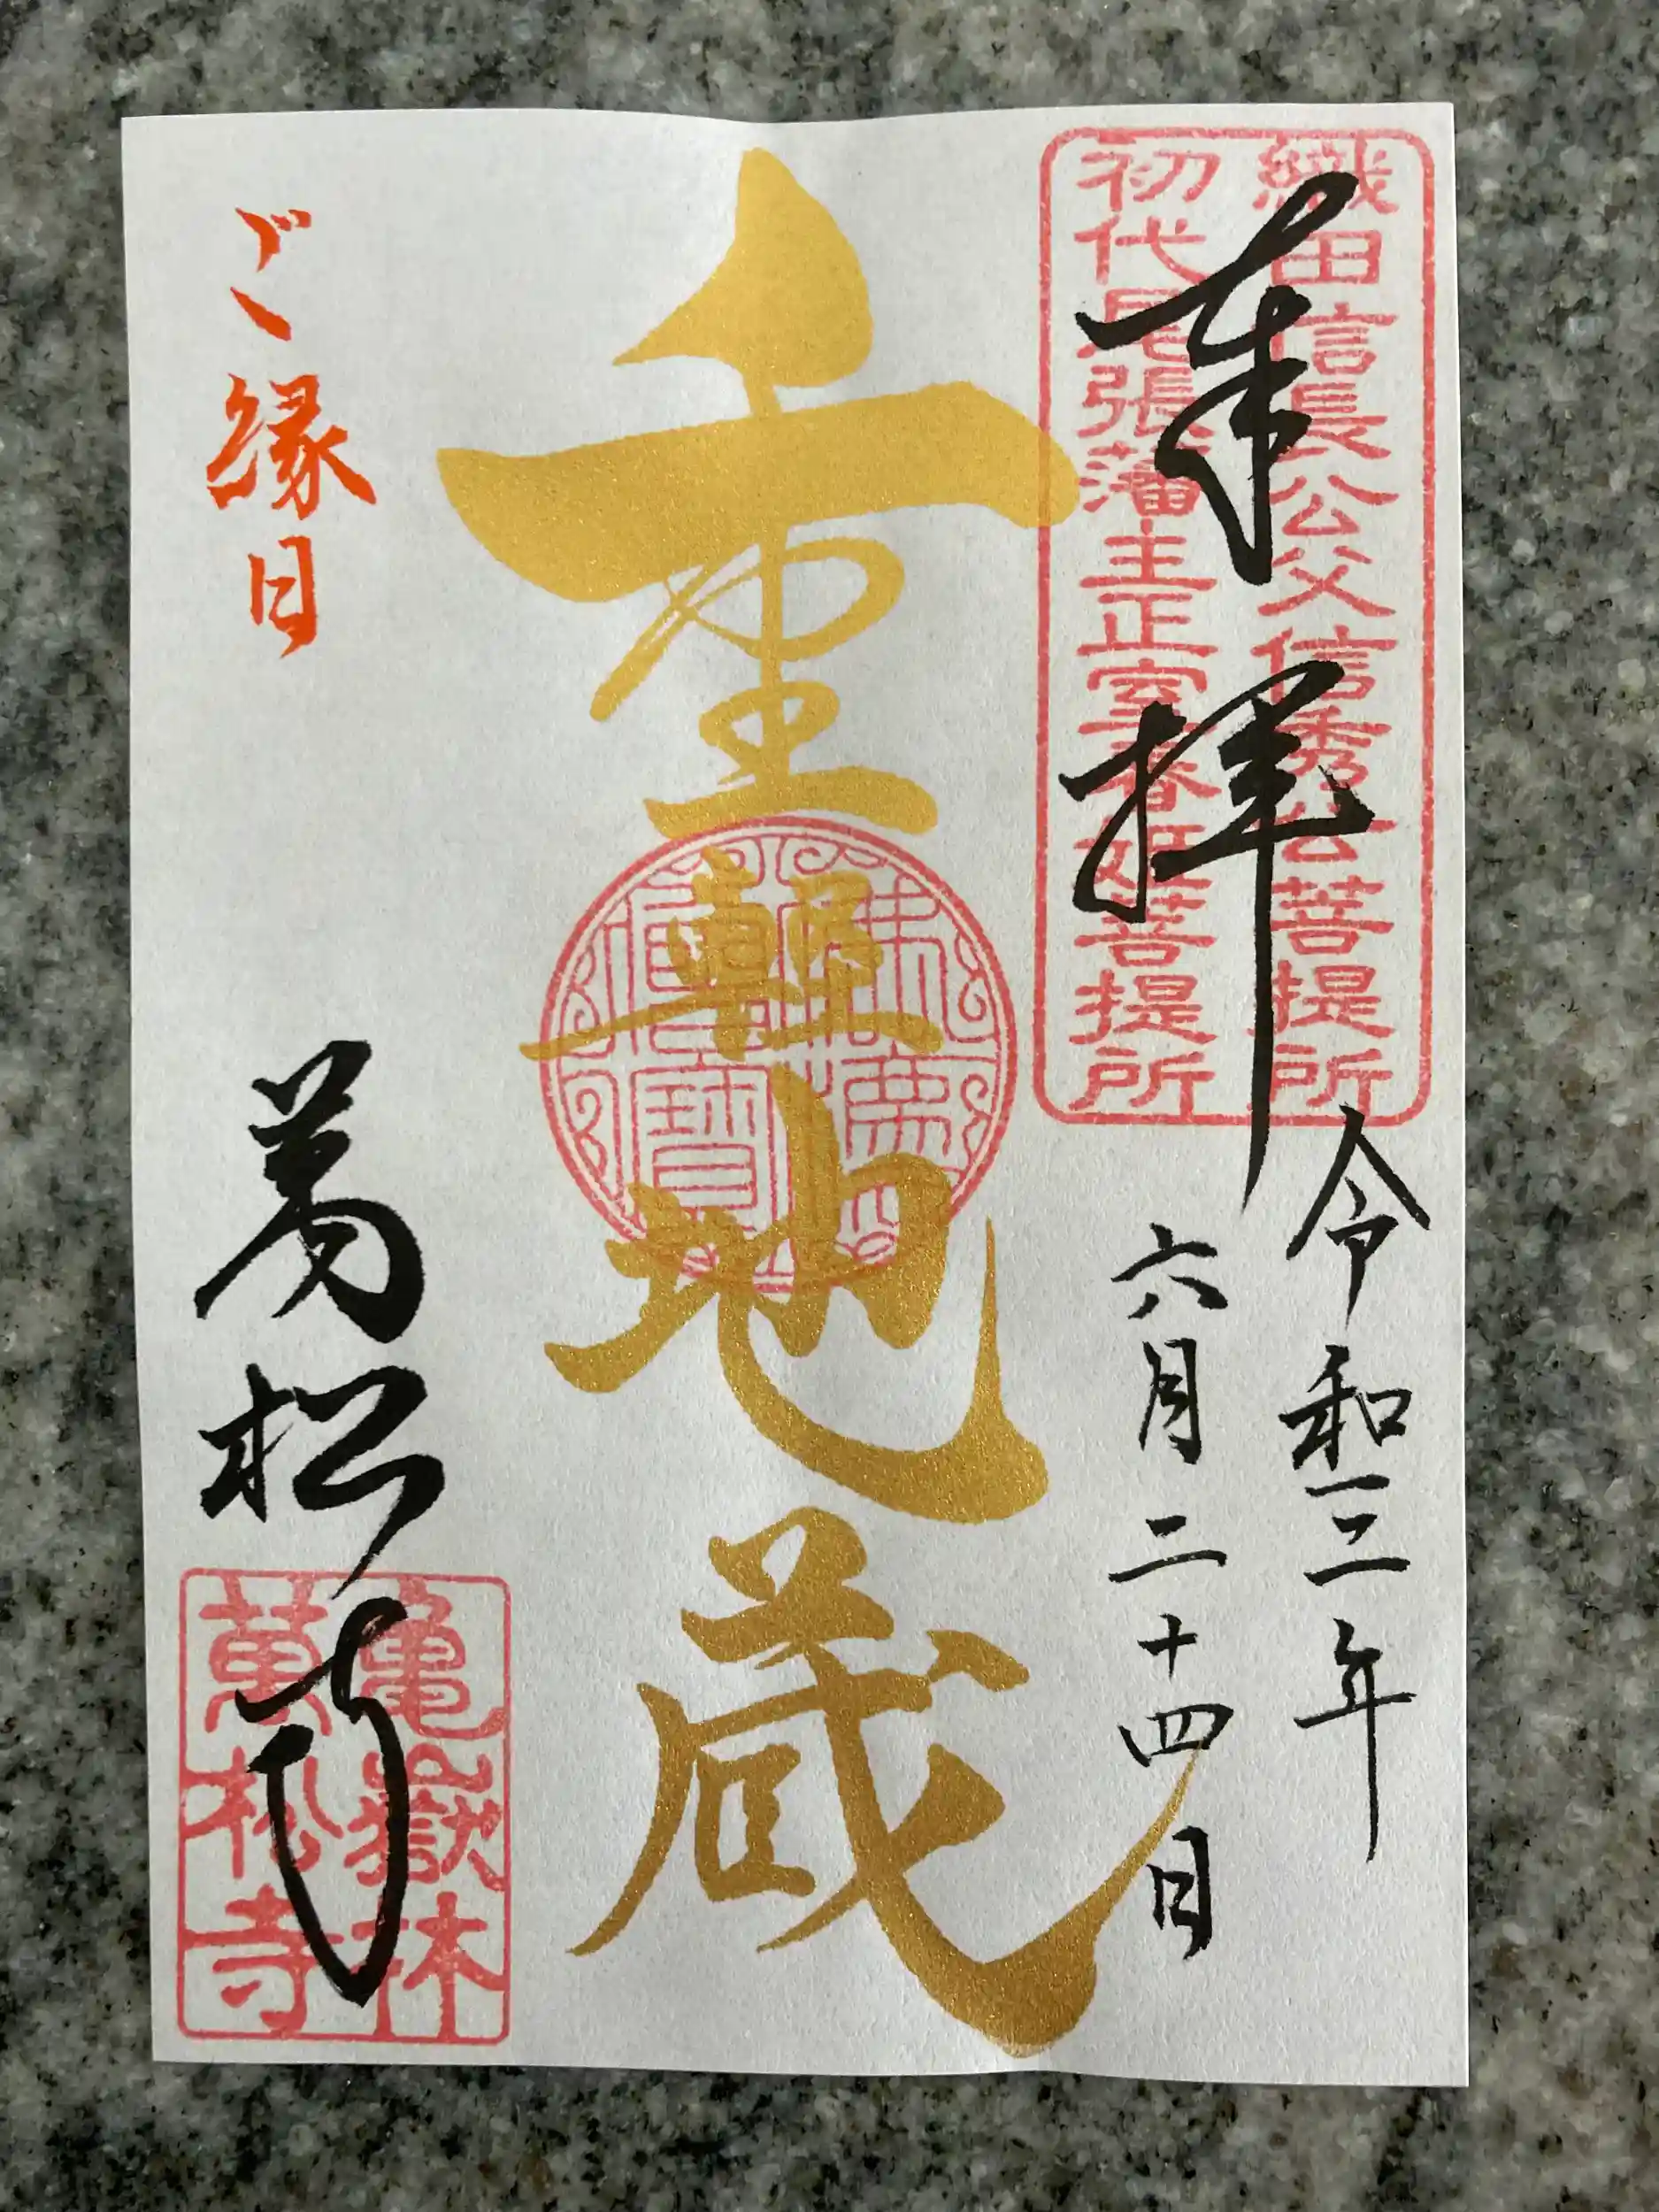 奉拝
織田信長公父信秀公菩提所
初代尾張藩主正室春姫菩提所
令和三年
六月二十四日
重軽地蔵
ご縁日
萬松寺
亀嶽林
萬松寺